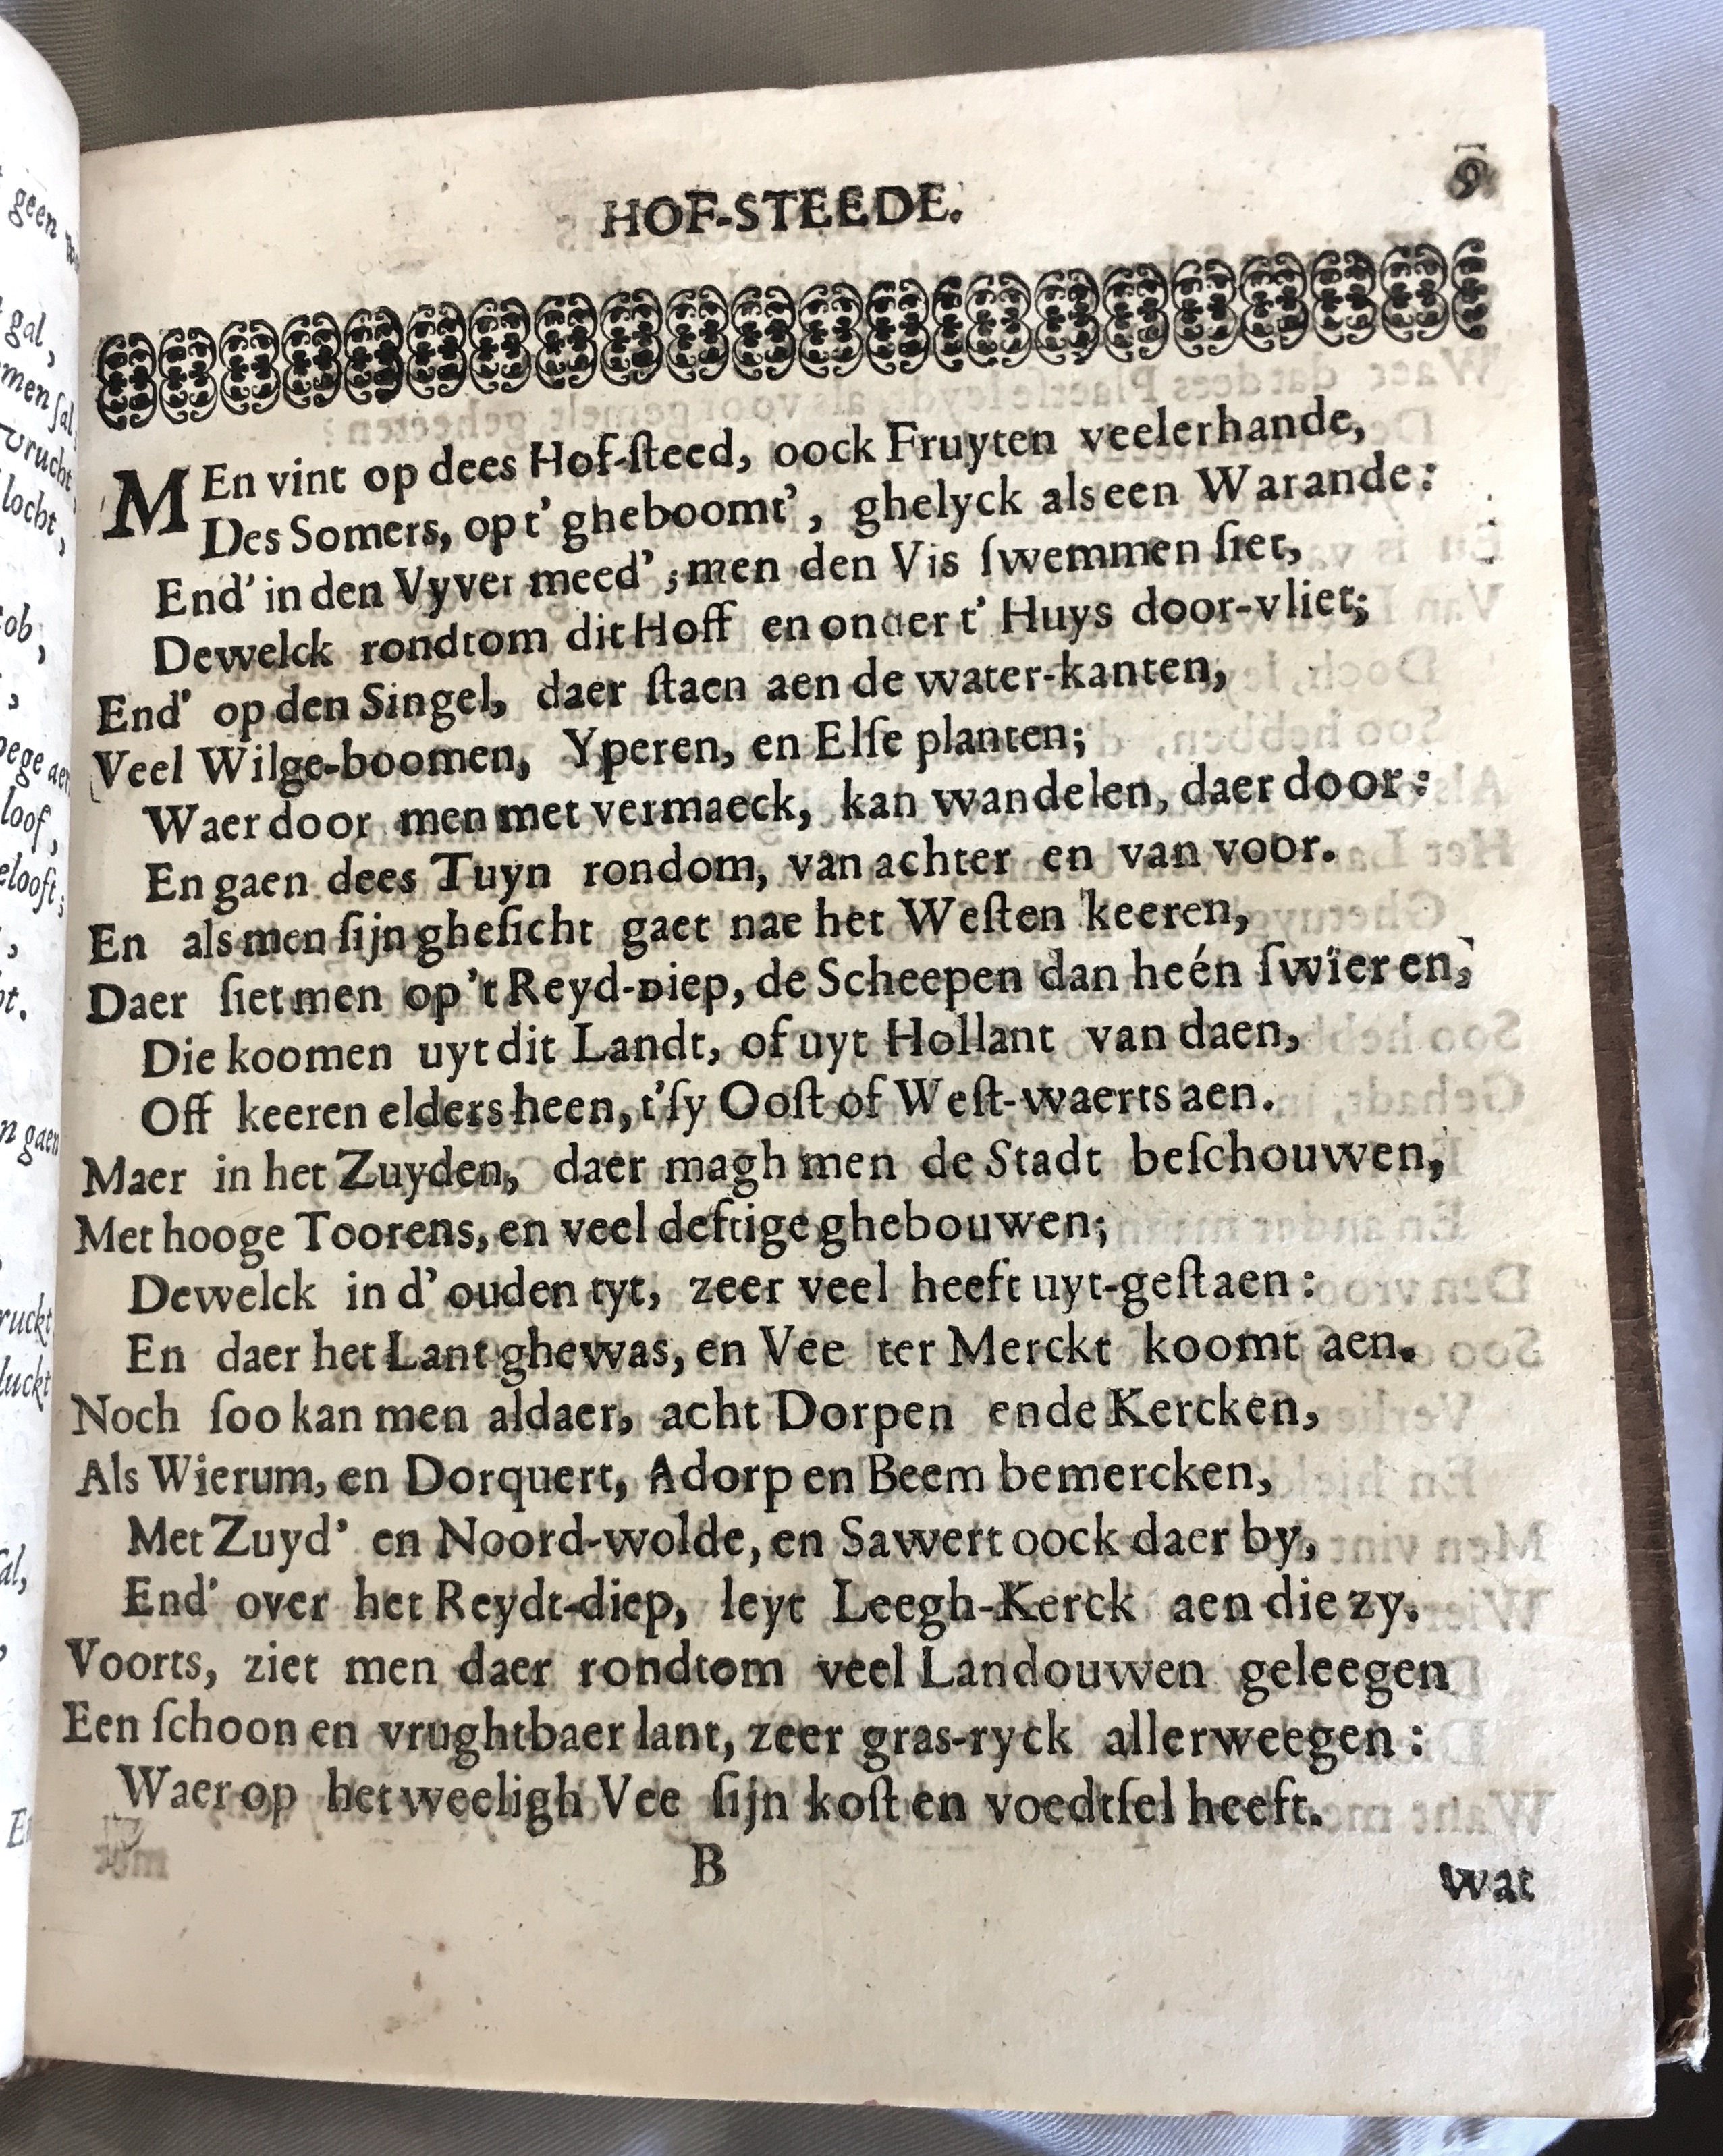 9
HOF-STEEDE.
MEn vint op dees Hof-ſteed, oock Fruyten veelerhande,
Des Somers, op t' gheboomt', ghelyck als een Warande:
End' in den Vyver meed'; men den Vis ſwemmen ſiet,
Dewelck rondtom dit Hoff en onder t' Huys door-vliet;
End' op den Singel, daer ſtaen aen de water-kanten,
Veel Wilge-boomen, Yperen, en Elſe planten;
Waer door men met vermaeck, kan wandelen, daer door:
En gaen dees Tuyn rondom, van achter en van voor.
En als men ſijn gheſicht gaet nae het Weſten keeren,
Daer ſiet men op 't Reyd-diep, de Scheepen dan heén ſwieren,
Die koomen uyt dit Landt, of uyt Hollant van daen,
Off keeren elders heen, t'ſy Ooſt of Weſt-waerts aen.
Maer in het Zuyden, daer magh men de Stadt beſchouwen,
Met hooge Toorens, en veel deftige ghebouwen;
Dewelck in d' ouden tyt, zeer veel heeft uyt-geſtaen:
En daer het Lant ghewas, en Vee ter Merckt koomt aen.
Noch ſoo kan men aldaer, acht Dorpen ende Kercken,
Als Wierum, en Dorquert, Adorp en Beem bemercken,
Met Zuyd' en Noord-wolde, en Sawert oock daer by,
End' over het Reydt-diep, leyt Leegh-Kerck aen die zy.
Voorts, ziet men daer rondtom veel Landouwen geleegen
Een ſchoon en vrughtbaer lant, zeer gras-ryck allerweegen:
Waer op het weeligh Vee ſijn koſt en voedtſel heeft.
B
wat